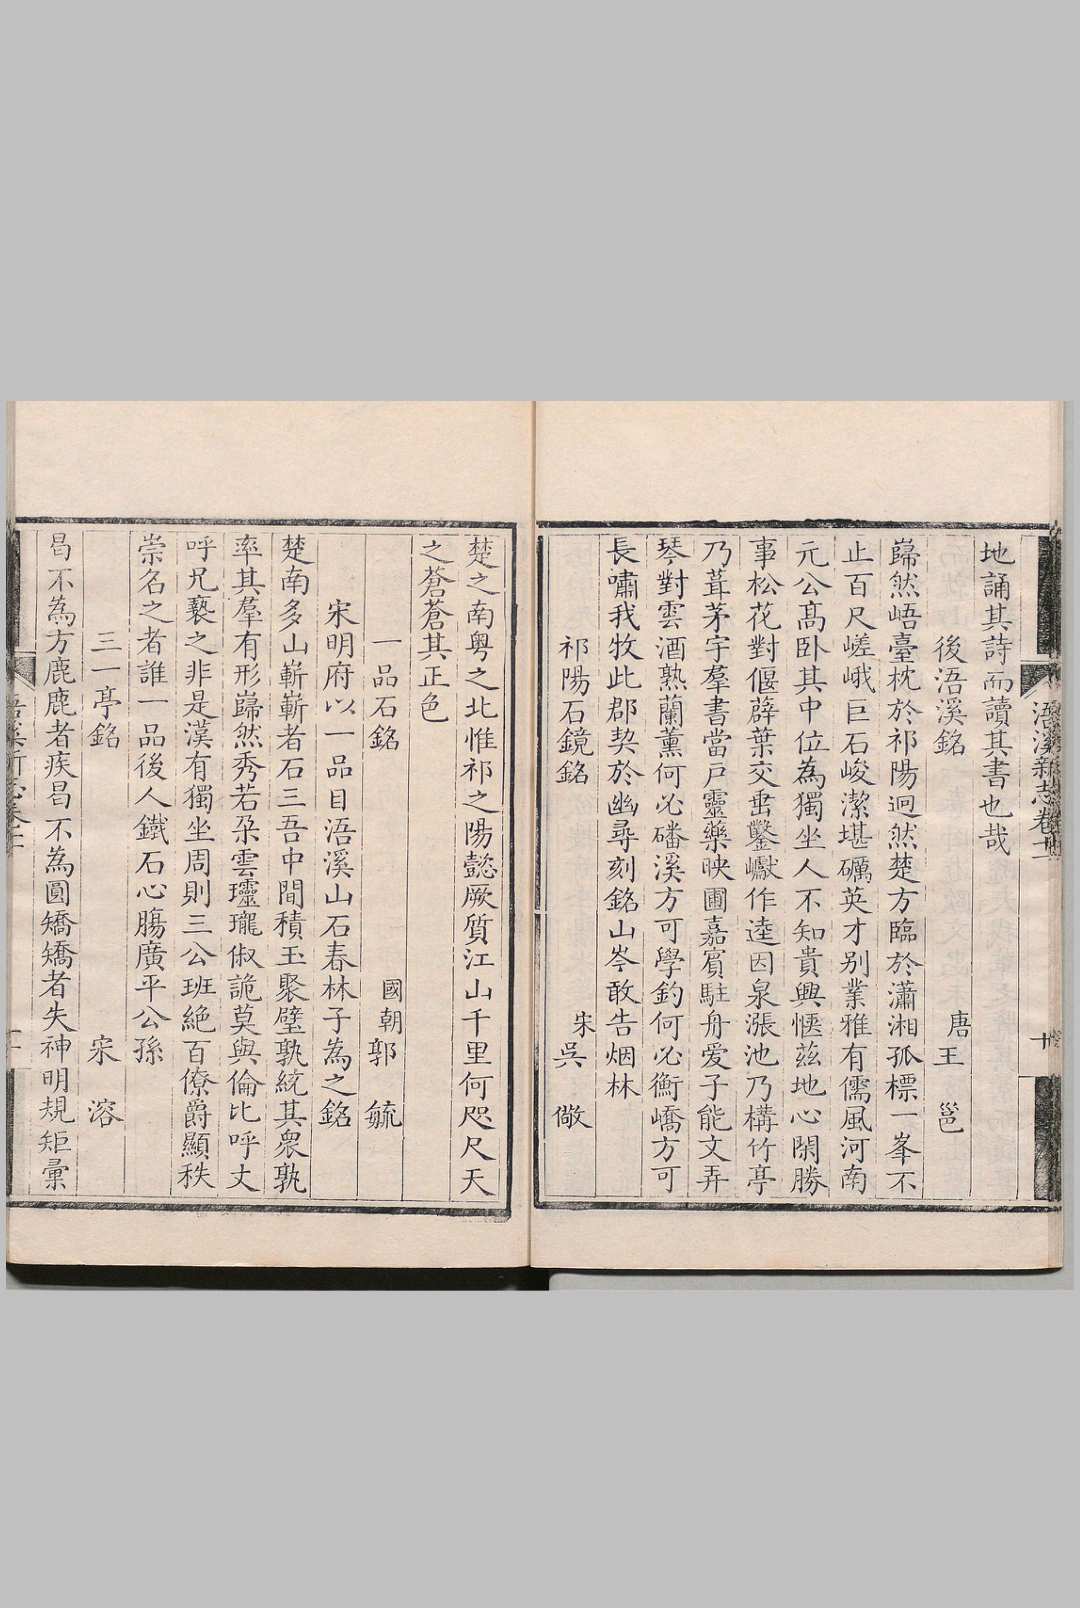 浯溪新志卷十二
十
地誦其詩而讀其書也哉
後浯溪銘 唐 王邕
巋然峿臺枕於祁陽迥然楚方臨於瀟湘孤標一峯不
止百尺嵯峨巨石峻潔堪礪英才别業雅有儒風河南
元公髙卧其中位為獨坐人不知貴興愜茲地心閑勝
事松花對偃薜葉交垂鑿巘作逵因泉漲池乃構竹亭
乃葺茅宇羣書當戸靈藥映圃嘉賓駐舟爱子能文弄
琴對雲酒熟蘭薰何必磻溪方可學釣何必衡嶠方可
長嘯我牧此郡契於幽尋刻銘山岑敢告烟林
祁陽石鏡銘 宋 吳儆
楚之南粤之北惟祁之陽懿厥質江山千里何咫尺天
之蒼蒼其正色
一品石銘 國朝 郭毓
宋明府以一品目浯溪山石春林子為之銘
楚南多山嶄嶄者石三吾中間積玉聚璧孰統其衆孰
率其羣有形巋然秀若朶雲瓏瓏俶詭莫與倫比呼丈
呼兄褻之非是漢有獨坐周則三公班絶百僚爵顯秩
崇名之者誰一品後人鐵石心膓廣平公孫
三一亭銘 宋溶
曷不為方鹿鹿者疾曷不為圓矯矯者失神明規矩彙